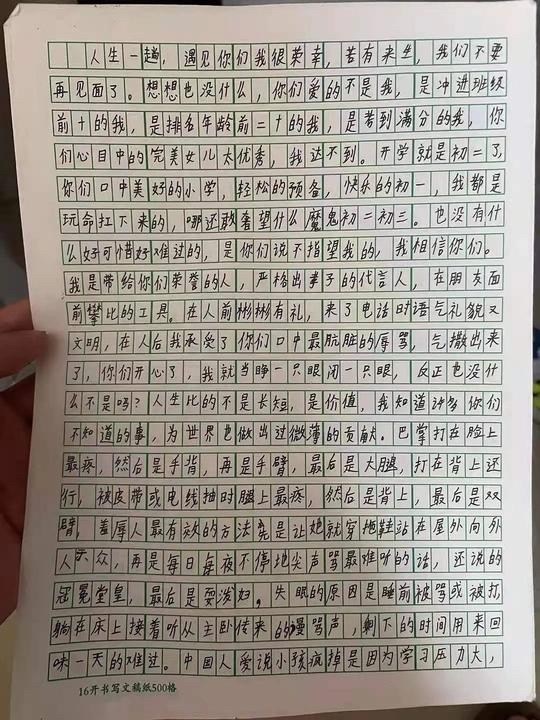 人生一趟，遇见你们我很荣幸，若有来生，我们不要
再见面了。想想也没什么，你们爱的不是我，是冲进班级
前十的我，是排名年龄前二十的我，是考到满分的我，你
们心目中的完美女儿太优秀，我达不到。开学就是初二了，
你们口中美好的小学，轻松的预备，快乐的初一，我都是
玩命扛下来的，哪还敢奢望什么魔鬼初二初三。也没有什
么好可惜好难过的，是你们说不指望我的，我相信你们。
我是带给你们荣誉的人，严格出孝子的代言人，在朋友面
前攀比的工具。在人前彬彬有礼，来了电话时语气礼貌又
文明，在人后我承受了你们口中最肮脏的辱骂，气撒出来
了，你们开心了，我就当睁一只眼闭一只眼，反正也没什
么不是吗？人生比的不是长短，是价值，我知道许多你们
不知道的事，为世界也做出过微薄的贡献。巴掌打在脸上
最疼，然后是手背，再是手臂，最后是大腿，打在背上还
行，被皮带或电线抽时腿上最疼，然后是背上，最后是双
臂，羞辱人最有效的方法是让她就穿拖鞋站在屋外向外
人示众，再是每日每夜不停地尖声骂最难听的话，还说的
冠冕堂皇，最后是耍泼妇。失眠的原因是睡前被骂或被打，
躺在床上接着听从主卧传来的谩骂声，剩下的时间用来回
味一天的难过。中国人爱说小孩疯掉是因为学习压力大，
16开书写文稿纸500格